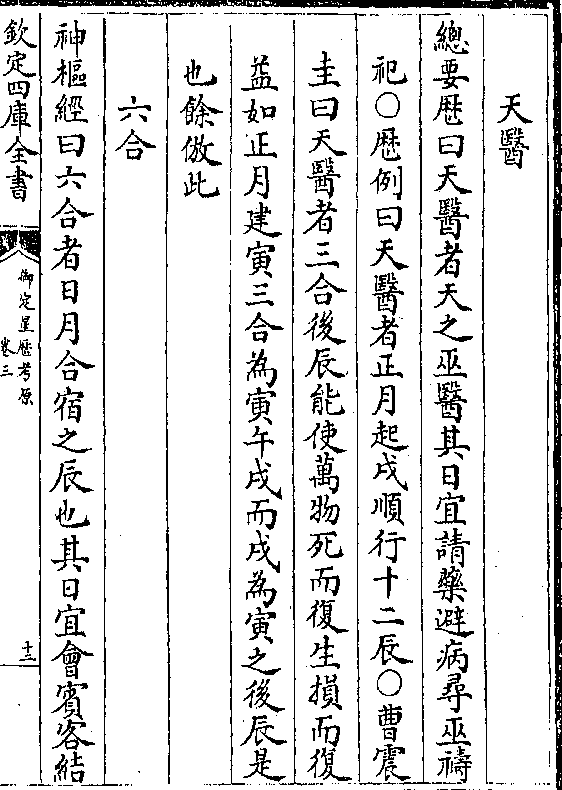 天醫
總要厯曰天醫者天之巫醫其日宜請藥避病尋巫禱
祀○厯例曰天醫者正月起戌順行十二辰○曹震
圭曰天醫者三合後辰能使萬物死而復生損而復
益如正月建寅三合為寅午戌而戌為寅之後辰是
也餘倣此
六合
神樞經曰六合者日月合宿之辰也其日宜會賓客結
欽定四庫全書
御定星厯考原
卷三
十二